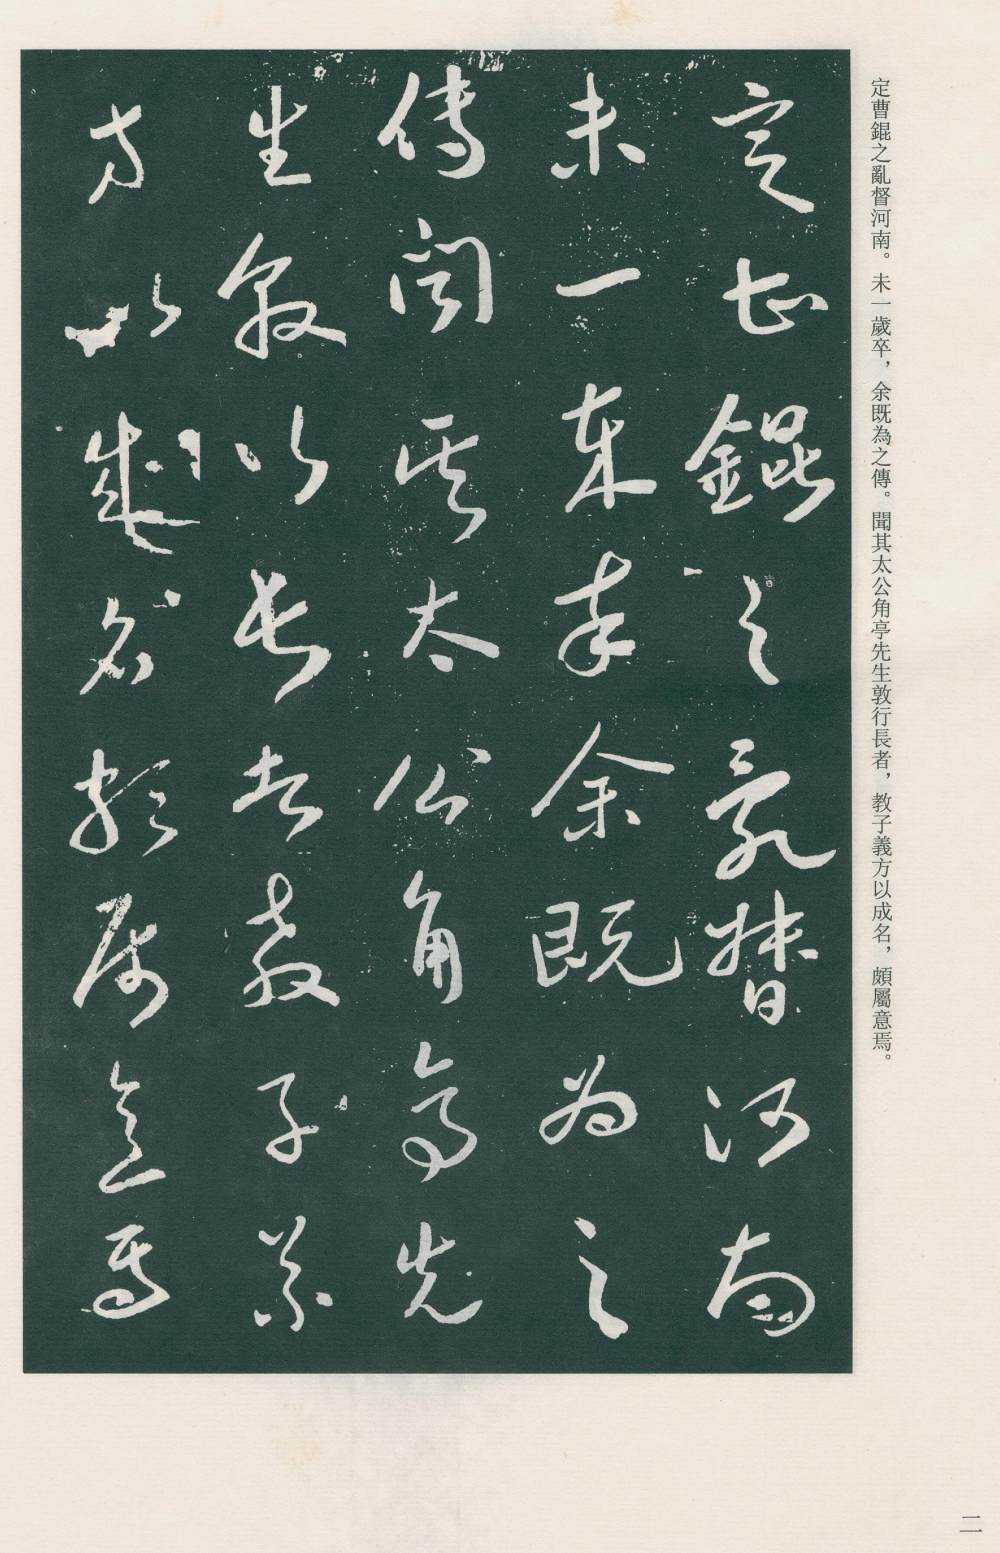 定曹錕之亂督河南。未一歲卒，余既為之傳。聞其太公角亭先生敦行長者，教子義方以成名，頗屬意焉。
定曹錕之亂督河南
未一歲卒余既為之
傳聞其太公角亭先
生敦行長者教子義
方以成名頗屬意焉
二